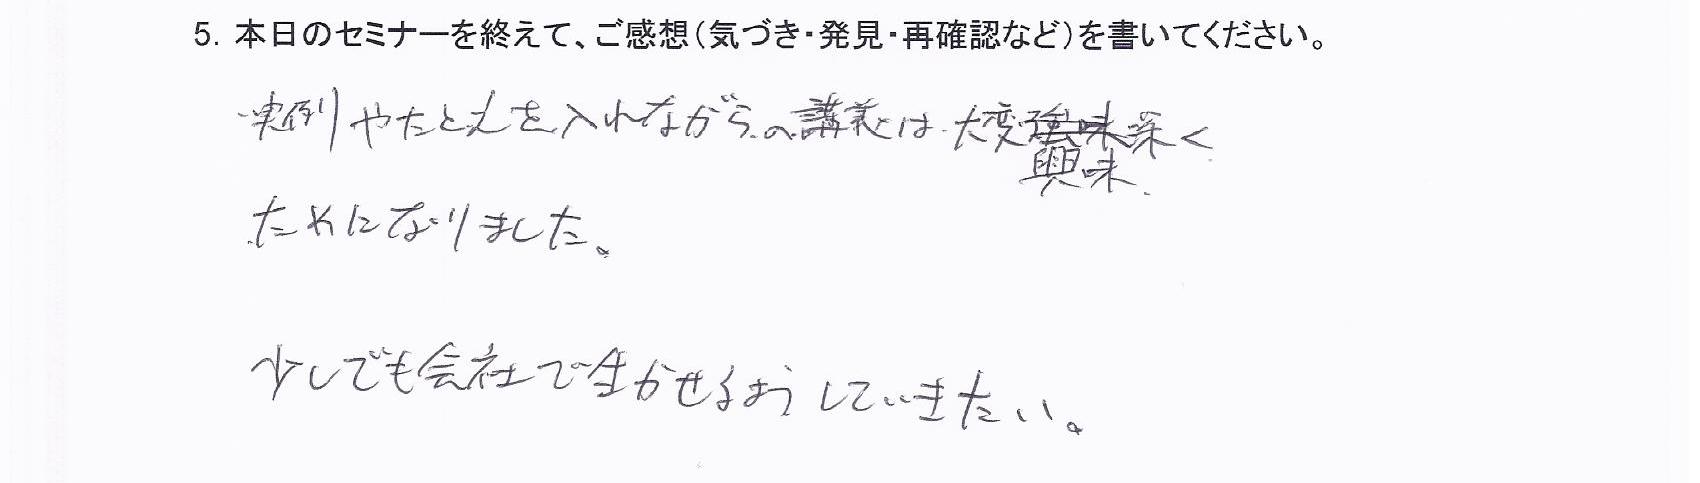 5. 本日のセミナーを終えて、ご感想（気づき・発見・再確認など）を書いてください。
実例やたとえを入れながらの講義は大変興味深く
ためになりました。
少しでも会社で生かせるようしていきたい。